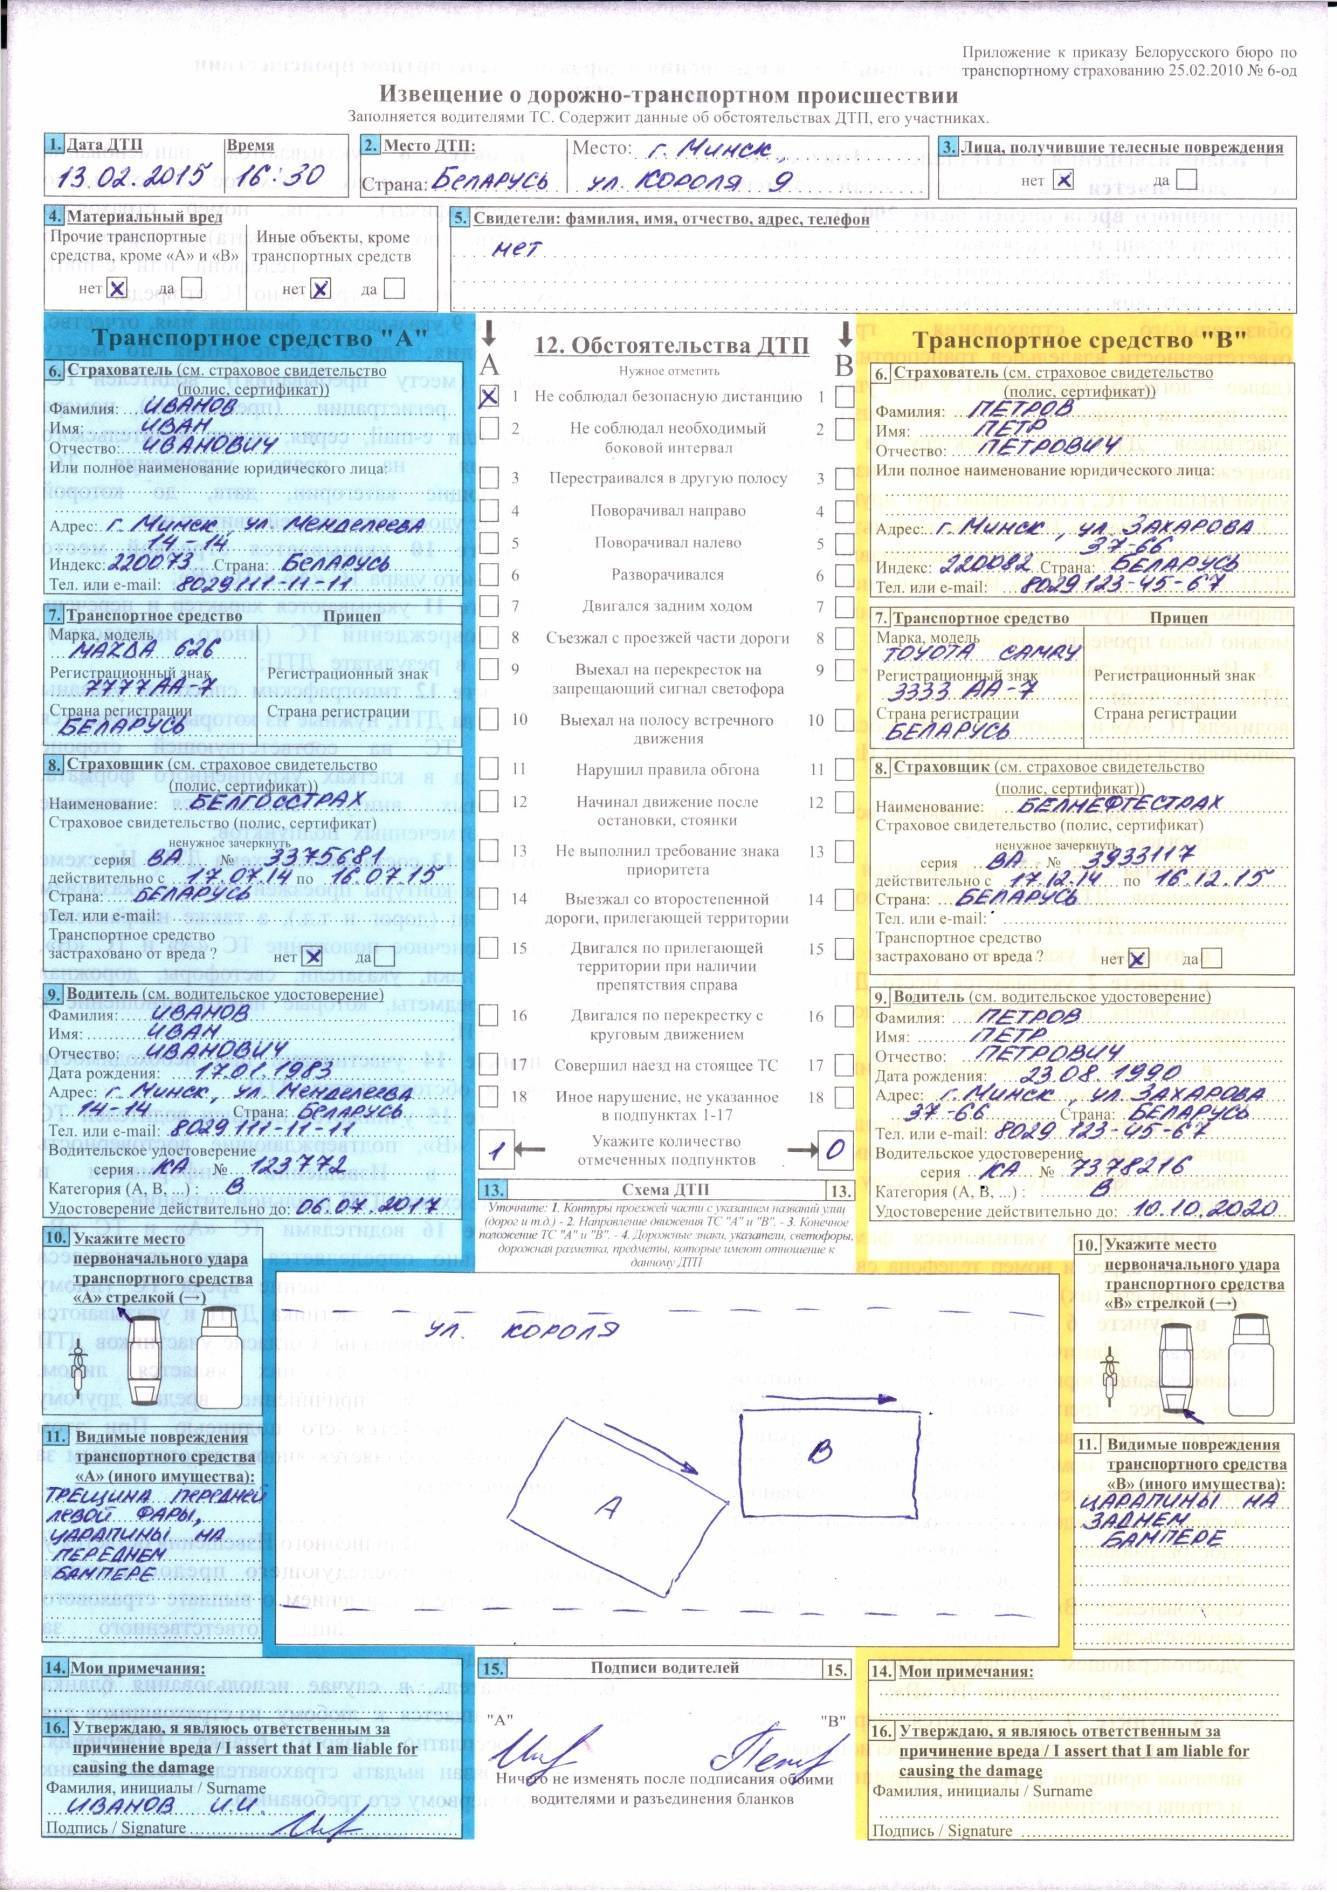 Приложение к приказу Белорусского бюро по
транспортному страхованию 25.02.2010 № 6-од
Извещение о дорожно-транспортном происшествии
Заполняется водителями ТС. Содержит данные об обстоятельствах ДТП, его участниках.
1. Дата ДТП Время
13.02.2015 16:30
2. Место ДТП: Место: г. Минск,
Страна: Беларусь ул. Короля 9
3. Лица, получившие телесные повреждения
нет X да
4. Материальный вред
Прочие транспортные средства, кроме «А» и «В»
нет X да
Иные объекты, кроме транспортных средств
нет X да
5. Свидетели: фамилия, имя, отчество, адрес, телефон
нет
Транспортное средство "А"
6. Страхователь (см. страховое свидетельство
(полис, сертификат))
Фамилия: Иванов
Имя: Иван
Отчество: Иванович
Или полное наименование юридического лица:
Адрес: г. Минск, ул. Менделеева
14-14
Индекс: 220073 Страна: Беларусь
Тел. или e-mail: 8029 111-11-11
7. Транспортное средство Прицеп
Марка, модель
МАЗДА 626
Регистрационный знак Регистрационный знак
7777 АА-7
Страна регистрации Страна регистрации
БЕЛАРУСЬ
8. Страховщик (см. страховое свидетельство
(полис, сертификат))
Наименование: БЕЛГОССТРАХ
Страховое свидетельство (полис, сертификат)
ненужное зачеркнуть
серия ВА № 3375681
действительно с 17.07.14 по 16.07.15
Страна: БЕЛАРУСЬ
Тел. или e-mail:
Транспортное средство
застраховано от вреда ? нет X да
9. Водитель (см. водительское удостоверение)
Фамилия: ИВАНОВ
Имя: ИВАН
Отчество: ИВАНОВИЧ
Дата рождения: 17.01.1983
Адрес: г. Минск, ул. Менделеева
14-14 Страна: Беларусь
Тел. или e-mail: 8029 111-11-11
Водительское удостоверение
серия КА № 123772
Категория (А, В, ...) : В
Удостоверение действительно до: 06.07.2017
10. Укажите место
первоначального удара
транспортного средства
«А» стрелкой (→)
11. Видимые повреждения
транспортного средства
«А» (иного имущества):
ТРЕЩИНА ПЕРЕДНЕЙ
ЛЕВОЙ ФАРЫ,
ЦАРАПИНЫ НА
ПЕРЕДНЕМ
БАМПЕРЕ
14. Мои примечания:
16. Утверждаю, я являюсь ответственным за
причинение вреда / I assert that I am liable for
causing the damage
Фамилия, инициалы / Surname
ИВАНОВ И.И.
Подпись / Signature
А 12. Обстоятельства ДТП В
Нужное отметить
X 1 Не соблюдал безопасную дистанцию 1
2 Не соблюдал необходимый 2
боковой интервал
3 Перестраивался в другую полосу 3
4 Поворачивал направо 4
5 Поворачивал налево 5
6 Разворачивался 6
7 Двигался задним ходом 7
8 Съезжал с проезжей части дороги 8
9 Выехал на перекресток на 9
запрещающий сигнал светофора
10 Выехал на полосу встречного 10
движения
11 Нарушил правила обгона 11
12 Начинал движение после 12
остановки, стоянки
13 Не выполнил требование знака 13
приоритета
14 Выезжал со второстепенной 14
дороги, прилегающей территории
15 Двигался по прилегающей 15
территории при наличии
препятствия справа
16 Двигался по перекрестку с 16
круговым движением
17 Совершил наезд на стоящее ТС 17
18 Иное нарушение, не указанное 18
в подпунктах 1-17
1 Укажите количество 0
отмеченных подпунктов
13. Схема ДТП 13.
Уточните: 1. Контуры проезжей части с указанием названий улиц
(дорог и т.д.) - 2. Направление движения ТС "А" и "В". - 3. Конечное
положение ТС "А" и "В". - 4. Дорожные знаки, указатели, светофоры,
дорожная разметка, предметы, которые имеют отношение к
данному ДТП
ул. КОРОЛЯ
А
В
15. Подписи водителей 15.
"А" "В"
Ничего не изменять после подписания обоими
водителями и разъединения бланков
Транспортное средство "В"
6. Страхователь (см. страховое свидетельство
(полис, сертификат))
Фамилия: ПЕТРОВ
Имя: ПЕТР
Отчество: ПЕТРОВИЧ
Или полное наименование юридического лица:
Адрес: г. Минск, ул. ЗАХАРОВА
37-66
Индекс: 220082 Страна: БЕЛАРУСЬ
Тел. или e-mail: 8029 123-45-67
7. Транспортное средство Прицеп
Марка, модель
TOYOTA CAMRY
Регистрационный знак Регистрационный знак
3333 АА-7
Страна регистрации Страна регистрации
БЕЛАРУСЬ
8. Страховщик (см. страховое свидетельство
(полис, сертификат))
Наименование: БЕЛНЕФТЕСТРАХ
Страховое свидетельство (полис, сертификат)
ненужное зачеркнуть
серия ВА № 3933117
действительно с 17.12.14 по 16.12.15
Страна: БЕЛАРУСЬ
Тел. или e-mail:
Транспортное средство
застраховано от вреда ? нет X да
9. Водитель (см. водительское удостоверение)
Фамилия: ПЕТРОВ
Имя: ПЕТР
Отчество: ПЕТРОВИЧ
Дата рождения: 23.08.1990
Адрес: г. Минск, ул. ЗАХАРОВА
37-66 Страна: БЕЛАРУСЬ
Тел. или e-mail: 8029 123-45-67
Водительское удостоверение
серия КА № 7378216
Категория (А, В, ...) : В
Удостоверение действительно до: 10.10.2020
10. Укажите место
первоначального удара
транспортного средства
«В» стрелкой (→)
11. Видимые повреждения
транспортного средства
«В» (иного имущества):
ЦАРАПИНЫ НА
ЗАДНЕМ
БАМПЕРЕ
14. Мои примечания:
16. Утверждаю, я являюсь ответственным за
причинение вреда / I assert that I am liable for
causing the damage
Фамилия, инициалы / Surname
Подпись / Signature